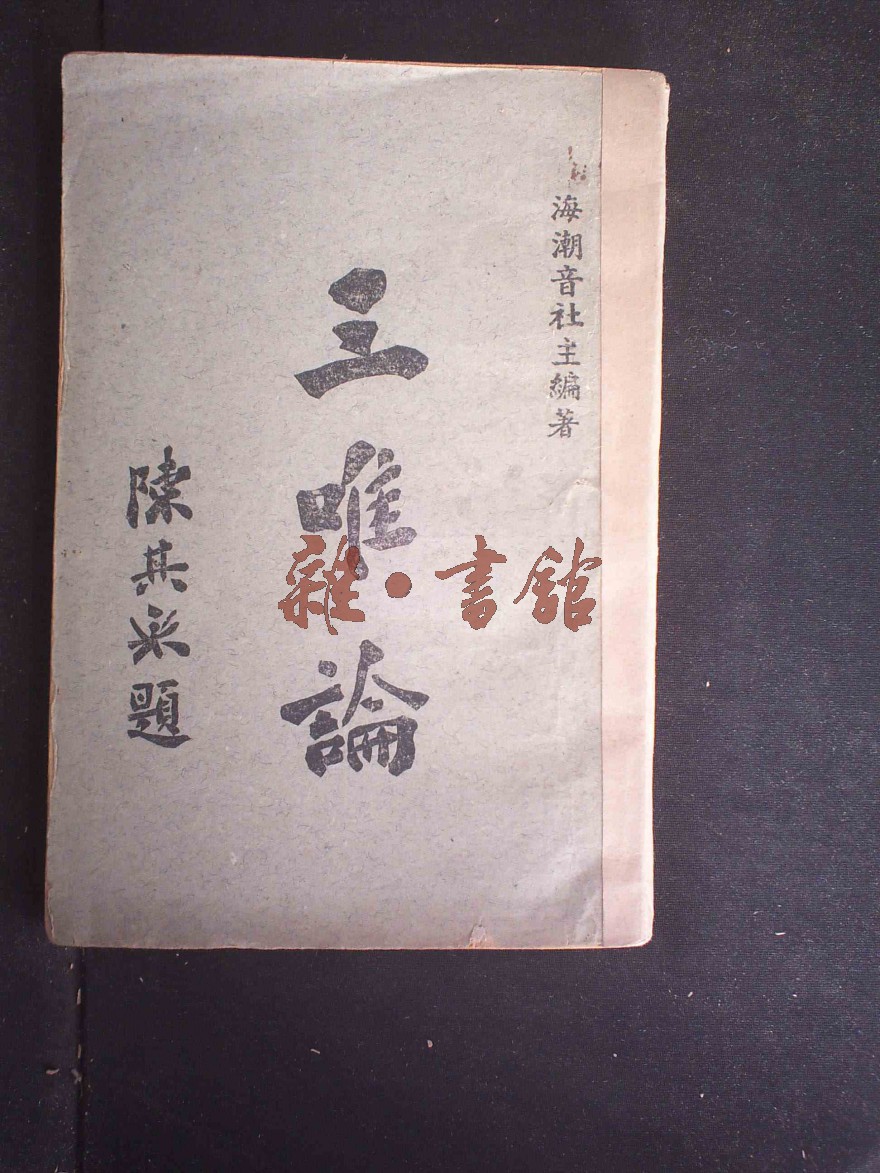 海潮音社主編著
三唯論
陳其采題
雜·書館